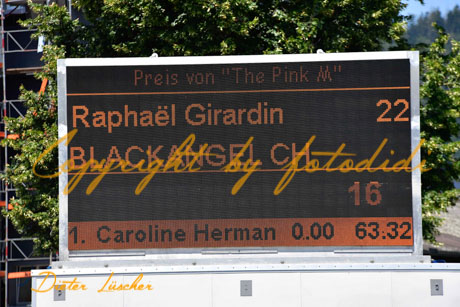 Preis von "The Pink M"
Raphaël Girardin 22
BLACKANGEL CH
Copyright by fotodidi
16
1. Caroline Herman 0.00 63:32
Dieter Lüscher